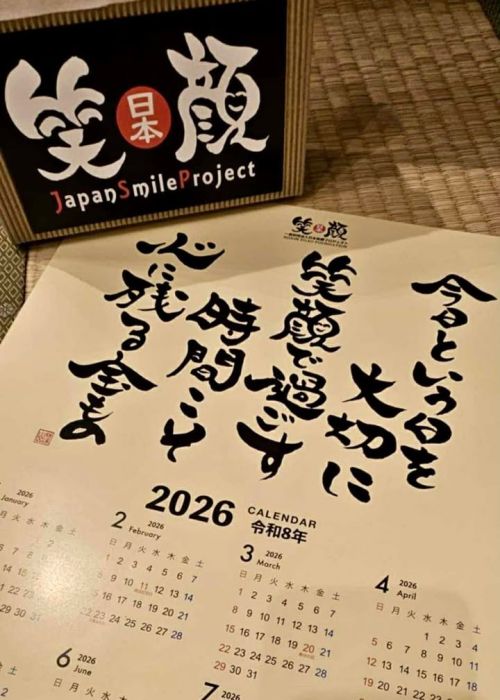 笑日本顔
JapanSmileProject
笑日本顔
今日という日を
大切に
笑顔で過ごす
時間こそ
心に残る宝もの
2026 CALENDAR
令和8年
2026
January
月 火 水 木 金 土
1 2 3
7 8 9 10
14 15 16 17
21 22 23 24
28 29 30 31
2 2026
February
日 月 火 水 木 金 土
1 2 3 4 5 6 7
8 9 10 11 12 13 14
15 16 17 18 19 20 21
22 23 24 25 26 27 28
3 2026
March
日 月 火 水 木 金 土
1 2 3 4 5 6 7
8 9 10 11 12 13 14
15 16 17 18 19 20 21
22 23 24 25 26 27 28
29 30 31
4 2026
April
日 月 火 水 木 金
1 2 3 4
5 6 7 8 9 10
12 13 14 15 16
19 20 21 22
26 27 28
6 2026
June
日 月 火 水 木 金 土
7 2026